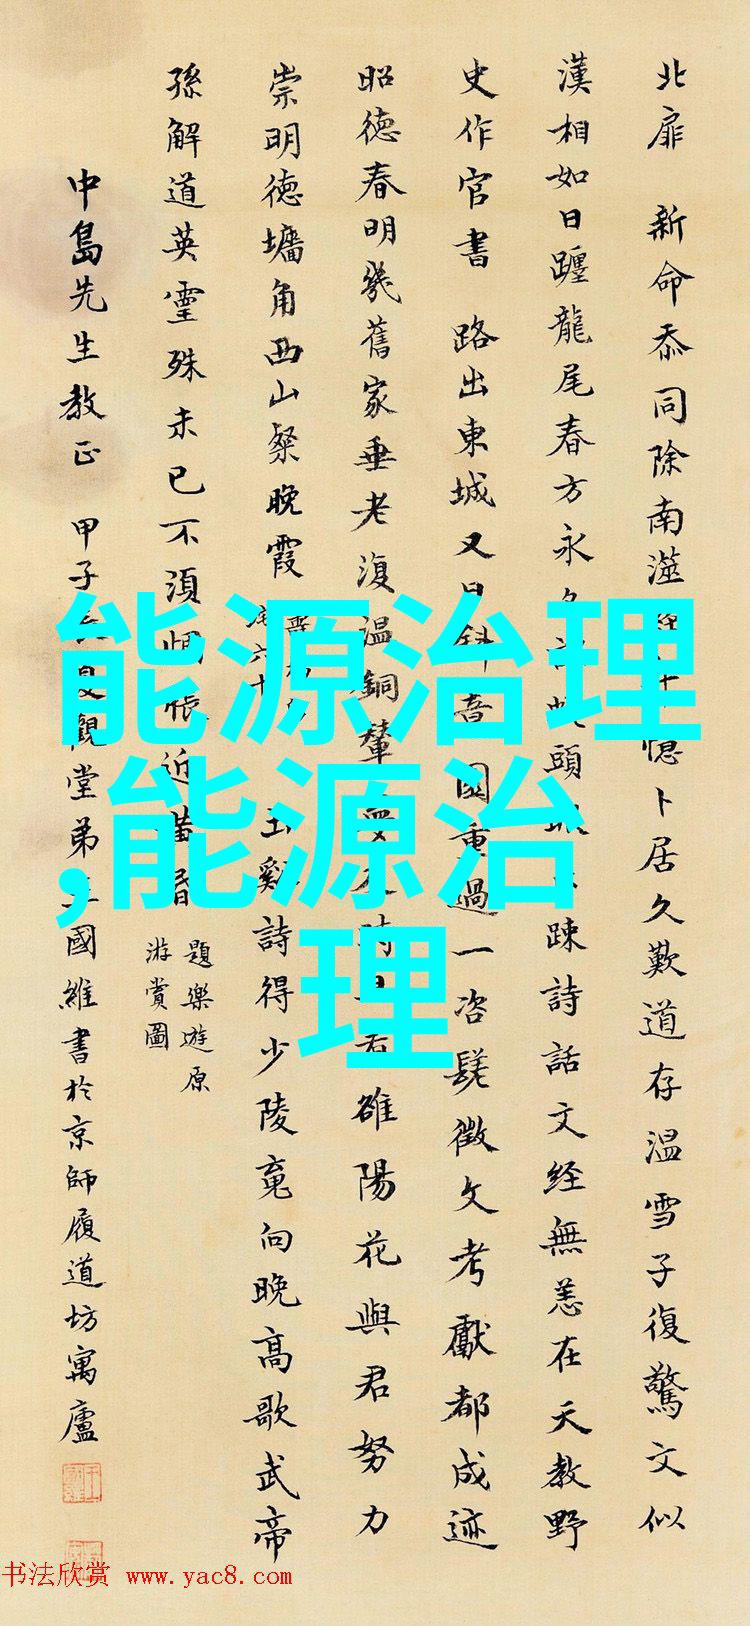 北扉 新命忝同除南
憶卜居久歎道存温雪子復驚文似
漢相如日躔龍尾春方永
頭
踈詩話文経無恙在天教野
史作官書 路出東城又日斜
國重過一咨嗟徵文考獻都成迹
昭德春明幾舊家垂老復温銅輦
雒陽花與君努力
崇明德墉角西山粲晚霞
玉谿詩得少陵竟向晚高歌武帝
孫解道英靈殊未已不須惆悵近黃昏
題樂遊原
游賞圖
中島先生教正 甲子
觀堂弟王國維書於京師履道坊寓廬
能源治理
,能源治
理
书法欣赏 www.yac8.com